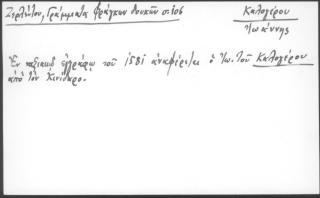 Ζερλέντου, Γράμματα Φράγκων δουκῶν σ. 106
Καλογέρου
Ἰωάννης
Ἐν ναξιακῷ ἐγγράφῳ τοῦ 1581 ἀναφέρεται ὁ Ἰω. τοῦ Καλογέρου
ἀπὸ τὸν Κινίδαρο.